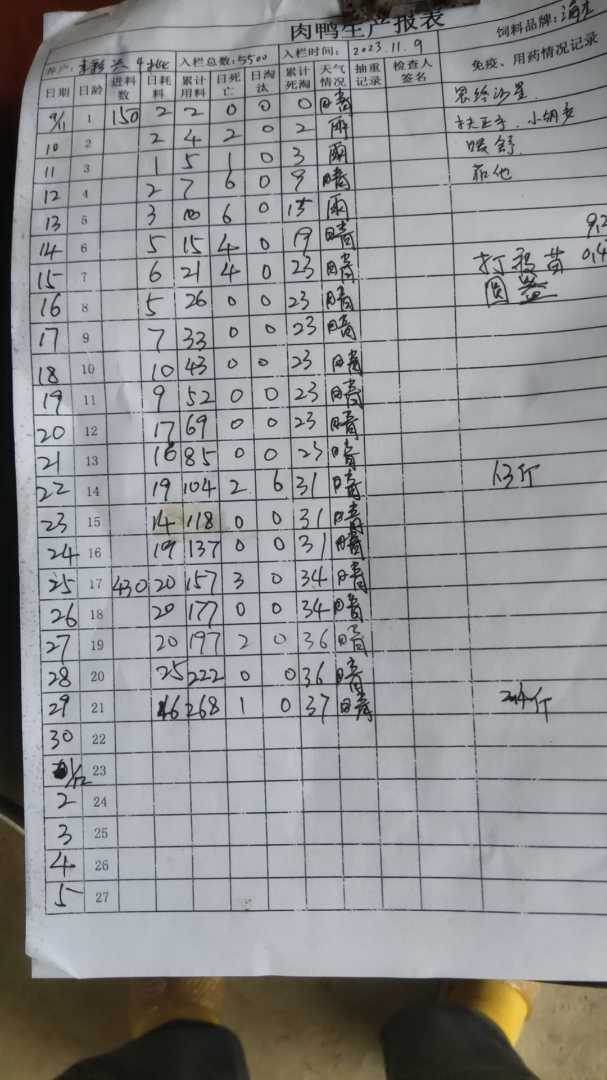 肉鸭生产报表
养户: 4批 入栏总数:5500 入栏时间: 2023.11.9 饲料品牌:海大
日期 日龄 进料数 日耗料 累计用料 日死亡 日淘汰 累计死淘 天气情况 抽重记录 检查人签名 免疫、用药情况记录
9/11 1 150 2 2 0 0 0 晴
10 2 2 4 2 0 2 雨
11 3 1 5 1 0 3 雨
12 4 2 7 6 0 9 晴
13 5 3 10 6 0 15 雨
14 6 5 15 4 0 19 晴 9.2
15 7 6 21 4 0 23 晴 打 苗 0.4
16 8 5 26 0 0 23 晴
17 9 7 33 0 0 23 晴
18 10 10 43 0 0 23 晴
19 11 9 52 0 0 23 晴
20 12 17 69 0 0 23 晴
21 13 16 85 0 0 23 晴
22 14 19 104 2 6 31 晴 1.3斤
23 15 14 118 0 0 31 晴
24 16 19 137 0 0 31 晴
25 17 430 20 157 3 0 34 晴
26 18 20 177 0 0 34 晴
27 19 20 197 2 0 36 晴
28 20 25 222 0 0 36 晴
29 21 46 268 1 0 37 晴 2.4斤
30 22
1/12 23
2 24
3 25
4 26
5 27